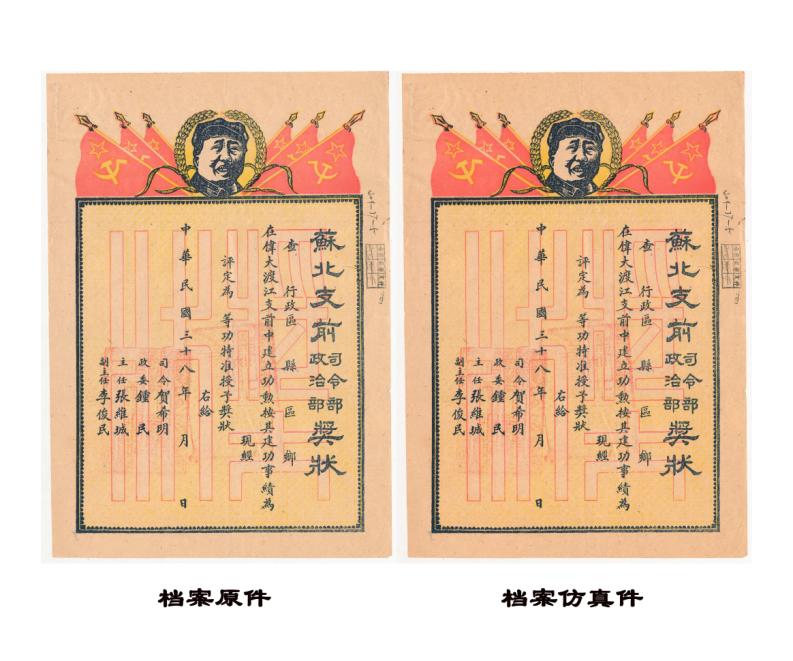 蘇北支前司令部政治部獎狀
查 行政區 縣 區 鄉
在偉大渡江支前中建立功勳按其建功事績為
現經
評定為 等功特准授予獎狀
右給
中華民國三十八年 月 日
司令賀希明
政委鍾民
主任張維城
副主任李俊民
蘇北支前司令部政治部獎狀
查 行政區 縣 區 鄉
在偉大渡江支前中建立功勳按其建功事績為
現經
評定為 等功特准授予獎狀
右給
中華民國三十八年 月 日
司令賀希明
政委鍾民
主任張維城
副主任李俊民
档案原件
档案仿真件